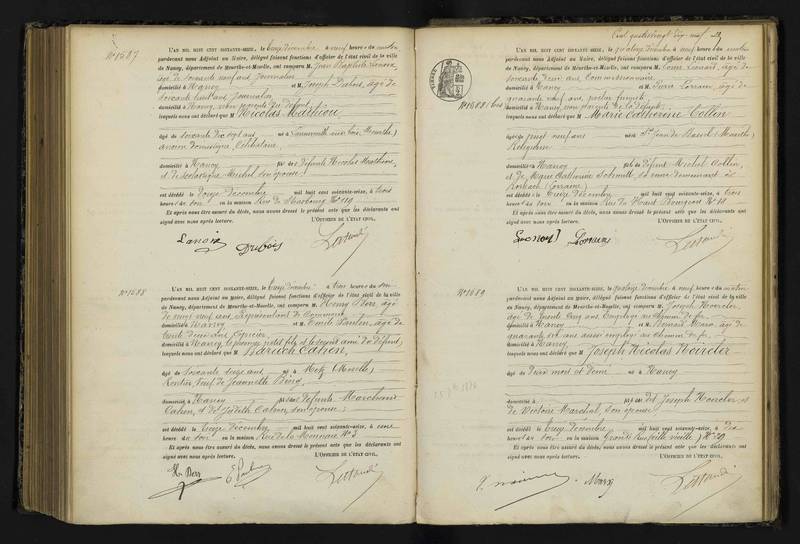 N° 1587
L'AN MIL HUIT CENT SOIXANTE-SEIZE, le treize décembre à neuf heures du matin
pardevant nous Adjoint au Maire, délégué faisant fonctions d'officier de l'état civil de la ville
de Nancy, département de Meurthe-et-Moselle, ont comparu M. Jean Baptiste
âgé de soixante neuf ans Journalier
domicilié à Nancy et M. Joseph Dubois, âgé de
soixante huit ans, Journalier
domicilié à Nancy, non parents du défunt
lesquels nous ont déclaré que M. Nicolas Mathieu
âgé de soixante dix sept ans né à (Meurthe)
ancien domestique, Célibataire,
domicilié à Nancy fils des défunts Nicolas Mathieu,
et de Michel, son épouse
est décédé le douze Décembre mil huit cent soixante-seize, à trois
heures du soir en la maison Rue de Strasbourg N° 119
Et après nous être assuré du décès, nous avons dressé le présent acte que les déclarants ont
signé avec nous après lecture. L'OFFICIER DE L'ÉTAT CIVIL,
Dubois
N° 1588
L'AN MIL HUIT CENT SOIXANTE-SEIZE, le treize décembre à trois heures du soir
pardevant nous Adjoint au maire, délégué faisant fonctions d'officier de l'état civil de la ville
de Nancy, département de Meurthe-et-Moselle, ont comparu M. Henry Derr, âgé
de vingt neuf ans, Représentant de Commerce
domicilié à Nancy et M. Emile âgé de
trente deux ans,
domicilié à Nancy, le premier petit fils et le second ami du défunt,
lesquels nous ont déclaré que M. Baruch Cahen,
âgé de soixante ans né à Metz (Moselle)
Rentier, veuf de Jeannette Bing,
domicilié à Nancy fils des défunts
Cahen, et de Judith Cahen, son épouse
est décédé le treize Décembre mil huit cent soixante-seize, à onze
heures du en la maison Rue de la Monnaie N° 3
Et après nous être assuré du décès, nous avons dressé le présent acte que les déclarants ont
signé avec nous après lecture. L'OFFICIER DE L'ÉTAT CIVIL,
H. Derr
Cent quatrevingt dix neuf
N° 1588 bis
L'AN MIL HUIT CENT SOIXANTE-SEIZE, le quatorze décembre à neuf heures du matin
pardevant nous Adjoint au Maire, délégué faisant fonctions d'officier de l'état civil de la ville
de Nancy, département de Meurthe-et-Moselle, ont comparu M. Louis âgé de
soixante deux ans, Commissionnaire,
domicilié à Nancy et M. Lorrain, âgé de
quarante neuf ans,
domicilié à Nancy, non parents de la défunte
lesquels nous ont déclaré que M. Marie Catherine Collin
âgée de neuf ans née à St Jean de Bassel (Meurthe)
Religieuse
domicilié à Nancy fille de défunt Michel Collin,
et de Marie Catherine Schmitt, sa veuve demeurant à
(Lorraine)
est décédé le treize décembre mil huit cent soixante-seize, à trois
heures du soir en la maison Rue du Haut Bourgeois N°
Et après nous être assuré du décès, nous avons dressé le présent acte que les déclarants ont
signé avec nous après lecture. L'OFFICIER DE L'ÉTAT CIVIL,
Lorrain
N° 1589
L'AN MIL HUIT CENT SOIXANTE-SEIZE, le quatorze décembre à neuf heures du matin
pardevant nous Adjoint au maire, délégué faisant fonctions d'officier de l'état civil de la ville
de Nancy, département de Meurthe-et-Moselle, ont comparu M. Joseph Noircler
âgé de trente cinq ans, Employé au chemin de fer
domicilié à Nancy et M. Bernard Marx, âgé de
quarante six ans aussi employé au chemin de fer
domicilié à Nancy,
lesquels nous ont déclaré que M. Joseph Nicolas Noircler
âgé de deux mois et demi né à Nancy
domicilié à fils de Joseph Noircler, et
de Victoire Marchal, son épouse
est décédé le treize Décembre mil huit cent soixante-seize, à dix
heures du soir en la maison Grande Rue (ville vieille) N° 29
Et après nous être assuré du décès, nous avons dressé le présent acte que les déclarants ont
signé avec nous après lecture. L'OFFICIER DE L'ÉTAT CIVIL,
Marx